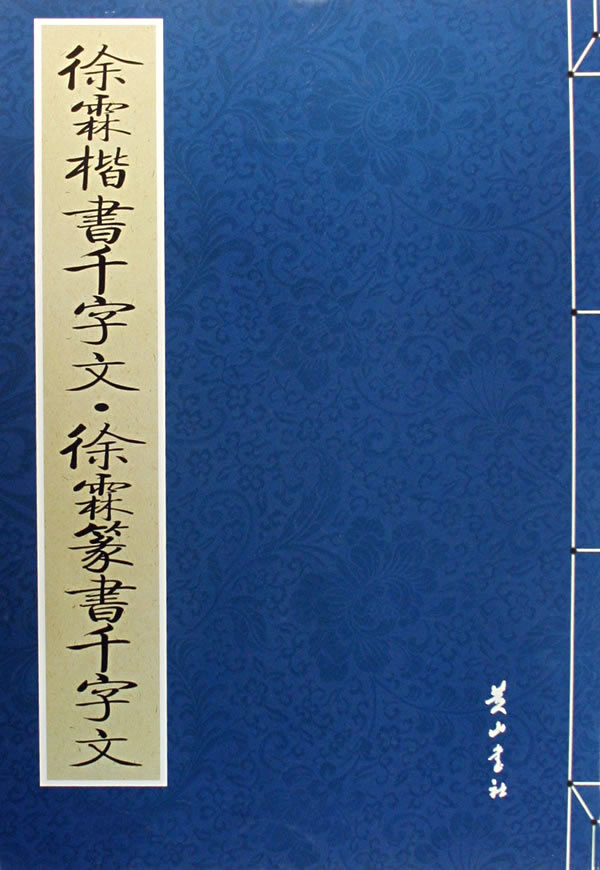 徐霖楷書千字文·徐霖篆書千字文
黄山书社